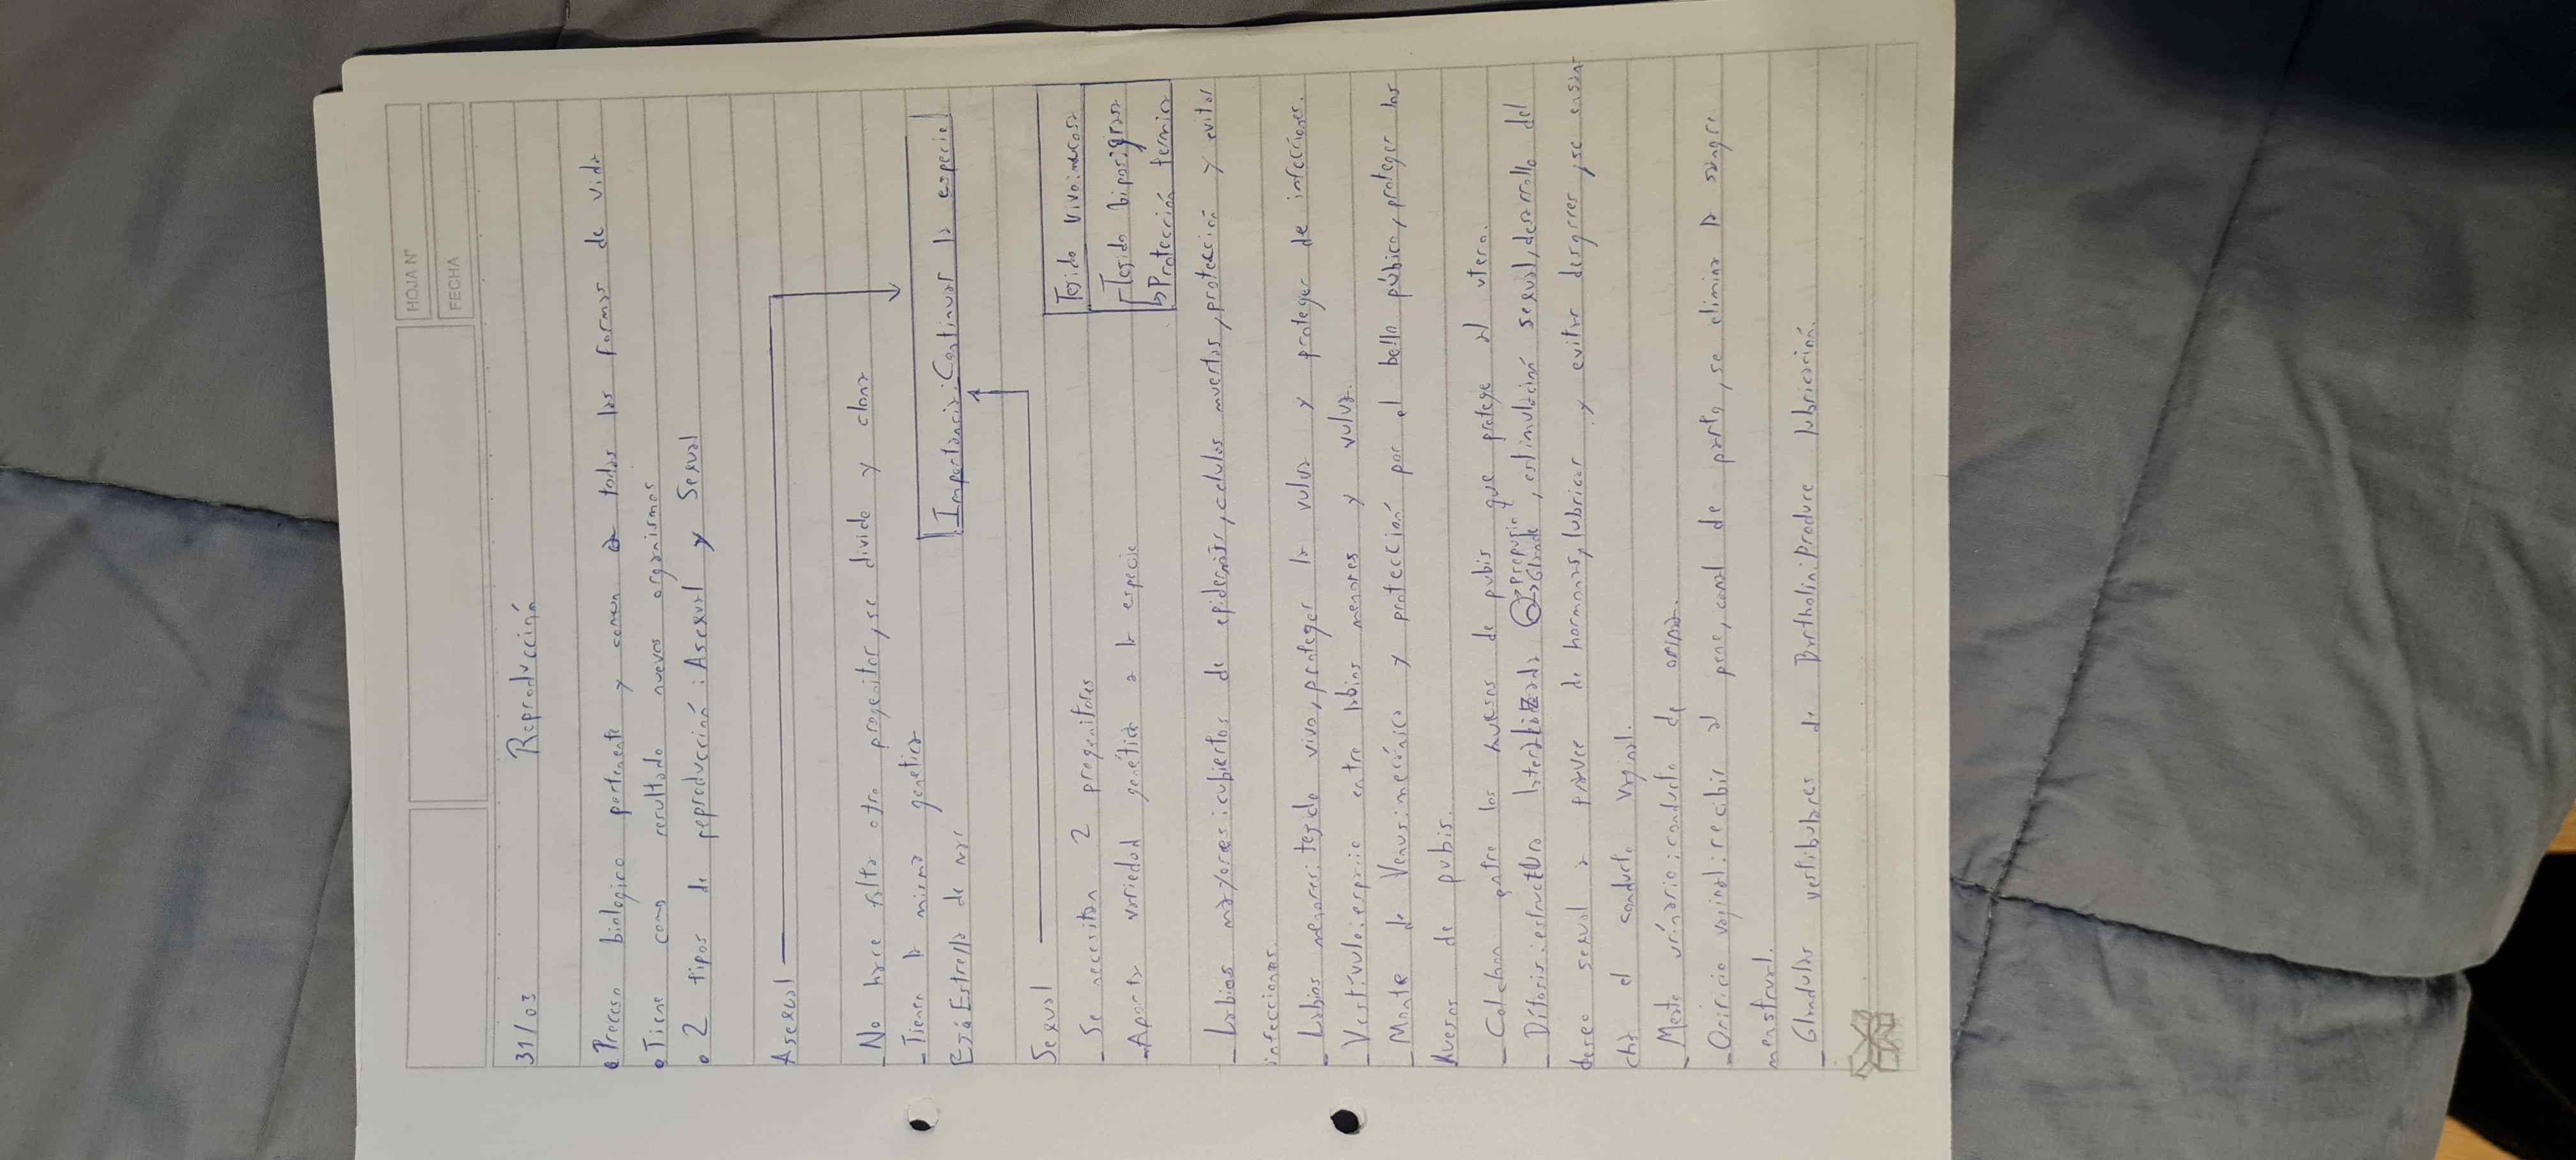 HOJA N°
FECHA
31/03 Reproducción
• Proceso biologico pertenente y comun a todas las formas de vida
• Tiene como resultado nuevos organismos
• 2 tipos de reproducción: Asexual y Sexual
Asexual
- No hace falta otro progenitor, se divide y clona
- Tienen la misma genetica
Ejs Estrella de mar
Importancia: Continuar la especie
Sexual
- Se necesitan 2 progenitores
- Aporta variedad genética a la especie
Tejido vivo: mucosa
Tejido
Protección termica
- Labios mayores: cubiertos de epidermis, celulas muertas, protección y evitar
infecciones.
- Labios menores: tejido vivo, proteger la vulva y proteger de infecciones.
- Vestivulo: espacio entre labios menores y vulva.
- Monte de Venus: mecánico y protección por el bello púbico, proteger los
huesos de pubis.
- Colchon entre los huesos de pubis que protege al utero.
- estructura prepusio Glande, estimulación sexual, desarrollo del
deseo sexual a de hormonas, lubricar y evitar desgrres, se ensan-
cha el conducto vaginal.
- Meato urinario: conducto de orina.
- Orificio vaginal: recibir al pene, canal de parto, se elimina la sangre
menstrual.
- Glandulas vestibulares de Bartholin: Produce lubricación.